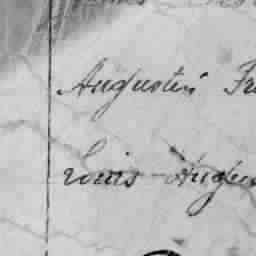 Augustin Fr
Louis Augus